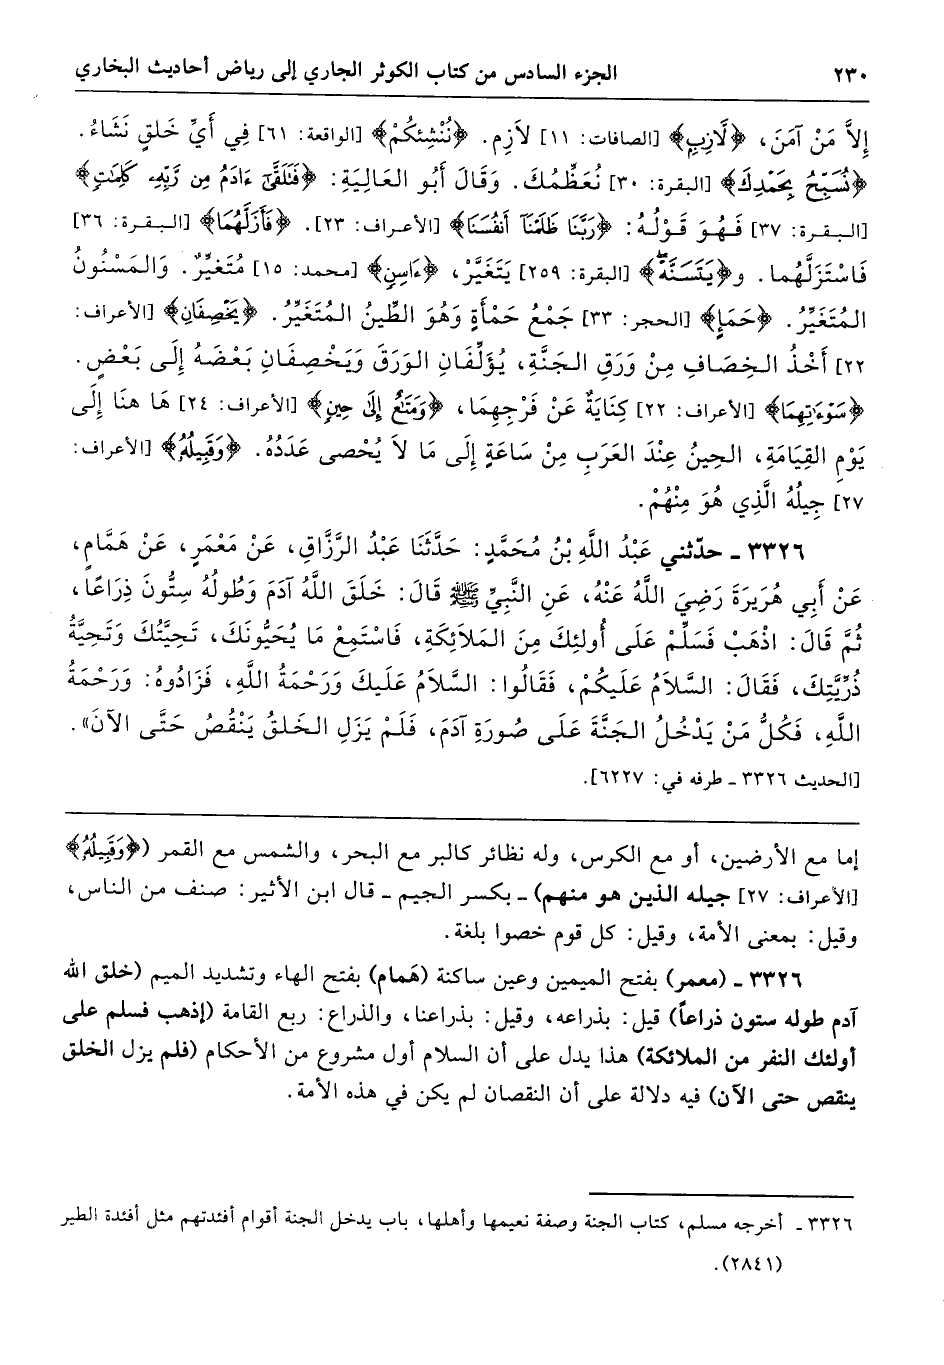 ٢٣٠ الجزء السادس من كتاب الكوثر الجاري إلى رياض أحاديث البخاري
إِلاَّ مَنْ آمَنَ، ﴿لَّازِبٍ﴾ [الصافات: ١١] لاَزِم. ﴿نُنْشِئكُمْ﴾ [الواقعة: ٦١] فِي أَيِّ خَلقٍ نَشَاءُ.
﴿نُسَبِّحُ بِحَمْدِكَ﴾ [البقرة: ٣٠] نُعَظِّمُكَ. وَقَالَ أَبُو العَالِيَةِ: ﴿فَتَلَقَّىٰٓ ءَادَمُ مِن رَّبِّهِۦ كَلِمَٰتٍ﴾
[البقرة: ٣٧] فَهُوَ قَوْلُهُ: ﴿رَبَّنَا ظَلَمْنَآ أَنفُسَنَا﴾ [الأعراف: ٢٣]. ﴿فَأَزَلَّهُمَا﴾ [البقرة: ٣٦]
فَاسْتَزَلَّهُما. و﴿يَتَسَنَّهْ﴾ [البقرة: ٢٥٩] يَتَغَيَّرْ، ﴿ءَاسِنٍ﴾ [محمد: ١٥] مُتَغَيِّرٌ. وَالمَسْنُونُ
المُتَغَيِّرُ. ﴿حَمَإٍ﴾ [الحجر: ٣٣] جَمْعُ حَمْأَةٍ وَهُوَ الطِّينُ المُتَغَيِّرُ. ﴿يَخْصِفَانِ﴾ [الأعراف:
٢٢] أَخْذُ الخِصَافِ مِنْ وَرَقِ الجَنَّةِ، يُؤَلِّفَانِ الوَرَقَ وَيَخْصِفَانِ بَعْضَهُ إِلَى بَعْضٍ.
﴿سَوْءَٰتِهِمَا﴾ [الأعراف: ٢٢] كِنَايَةٌ عَنْ فَرْجِهِمَا، ﴿وَمَتَٰعٌ إِلَىٰ حِينٍ﴾ [الأعراف: ٢٤] هَا هنَا إِلَى
يَوْمِ القِيَامَةِ، الحِينُ عِنْدَ العَرَبِ مِنْ سَاعَةٍ إِلَى مَا لاَ يُحْصى عَدَدُهُ. ﴿وَقَبِيلُهُۥ﴾ [الأعراف:
٢٧] جِيلُهُ الَّذِي هُوَ مِنْهُمْ.
٣٣٢٦ - حدّثني عَبْدُ اللَّهِ بْنُ مُحَمَّدٍ: حَدَّثَنَا عَبْدُ الرَّزَّاقِ، عَنْ مَعْمَرٍ، عَنْ هَمَّامٍ،
عَنْ أَبِي هُرَيرَةَ رَضِيَ اللَّهُ عَنْهُ، عَنِ النَّبِيِّ ﷺ قَالَ: خَلَقَ اللَّهُ آدَمَ وَطُولُهُ سِتُّونَ ذِرَاعًا،
ثُمَّ قَالَ: اذْهَبْ فَسَلِّمْ عَلَى أُولئِكَ مِنَ المَلاَئِكَةِ، فَاسْتَمِعْ مَا يُحَيُّونَكَ، تَحِيَّتُكَ وَتَحِيَّةُ
ذُرِّيَّتِكَ، فَقَالَ: السَّلاَمُ عَلَيكُمْ، فَقَالُوا: السَّلاَمُ عَلَيكَ وَرَحْمَةُ اللَّهِ، فَزَادُوهُ: وَرَحْمَةُ
اللَّهِ، فَكُلُّ مَنْ يَدْخُلُ الجَنَّةَ عَلَى صُورَةِ آدَمَ، فَلَمْ يَزَلِ الخَلقُ يَنْقُصُ حَتَّى الآنَ».
[الحديث ٣٣٢٦ - طرفه في: ٦٢٢٧].
إما مع الأرضين، أو مع الكرس، وله نظائر كالبر مع البحر، والشمس مع القمر (﴿وَقَبِيلُهُۥ﴾
[الأعراف: ٢٧] جيله الذين هو منهم) - بكسر الجيم - قال ابن الأثير: صنف من الناس،
وقيل: بمعنى الأمة، وقيل: كل قوم خصوا بلغة.
٣٣٢٦ - (معمر) بفتح الميمين وعين ساكنة (هَمام) بفتح الهاء وتشديد الميم (خلق الله
آدم طوله ستون ذراعاً) قيل: بذراعه، وقيل: بذراعنا، والذراع: ربع القامة (إذهب فسلم على
أولئك النفر من الملائكة) هذا يدل على أن السلام أول مشروع من الأحكام (فلم يزل الخلق
ينقص حتى الآن) فيه دلالة على أن النقصان لم يكن في هذه الأمة.
٣٣٢٦ - أخرجه مسلم، كتاب الجنة وصفة نعيمها وأهلها، باب يدخل الجنة أقوام أفئدتهم مثل أفئدة الطير
(٢٨٤١).